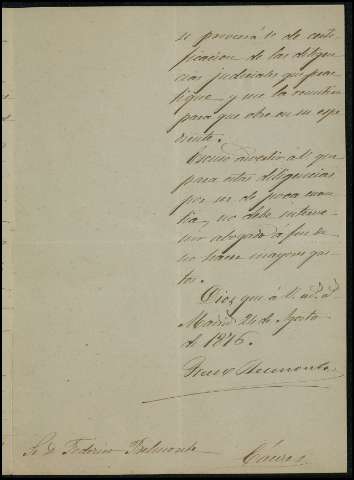 se proveerá de certi-
ficacion de las diligen-
cias judiciales que prac-
tique y me la remitira
para que obre en su espe-
diente.
Escuso advertir á V. que
para estas diligencias
por ser de poca cuan-
tia, no debe interve-
nir abogado á fin de
no hacer mayores gas-
tos.
Dios gue á V. m.s a.s
Madrid 24 de Agosto
de 1876.
Sr. D. Federico Belmonte
Cáceres